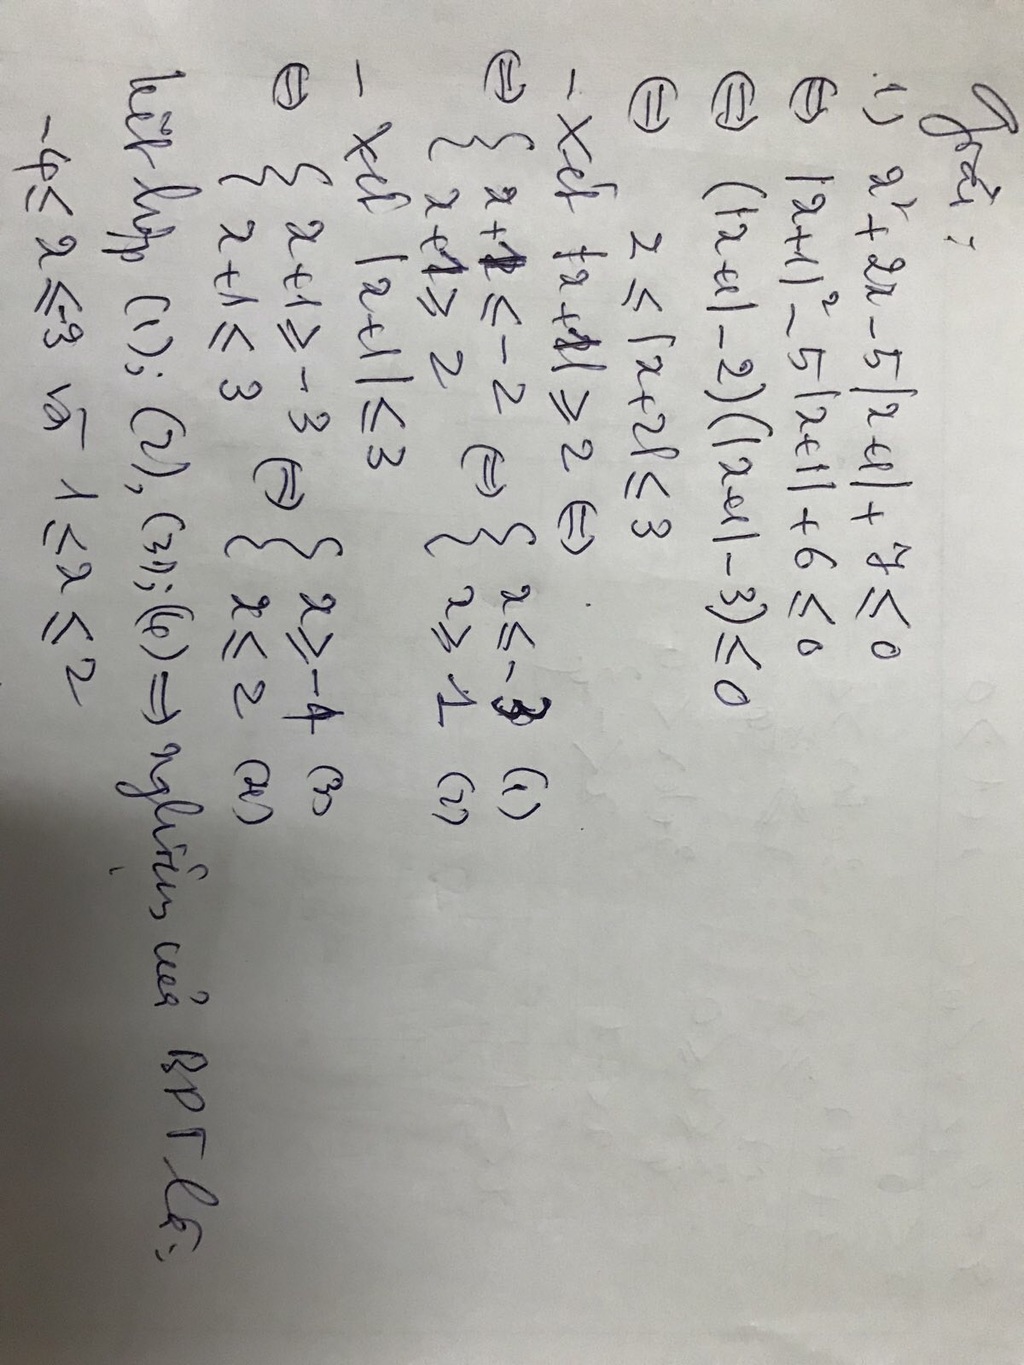 Giải:
1) x² + 2x - 5|x+1| + 7 ≤ 0
⇔ |x+1|² - 5|x+1| + 6 ≤ 0
⇔ (|x+1| - 2)(|x+1| - 3) ≤ 0
⇔ 2 ≤ |x+2| ≤ 3
- Xét |x+1| ≥ 2 ⇔
⇔ { x+1 ≤ -2 ⇔ { x ≤ -3 (1)
{ x+1 ≥ 2 { x ≥ 1 (2)
- Xét |x+1| ≤ 3
⇔ { x+1 ≥ -3 ⇔ { x ≥ -4 (3)
{ x+1 ≤ 3 { x ≤ 2 (4)
Kết hợp (1); (2), (3); (4) ⇒ nghiệm của BPT là:
-4 ≤ x ≤ -3 và 1 ≤ x ≤ 2